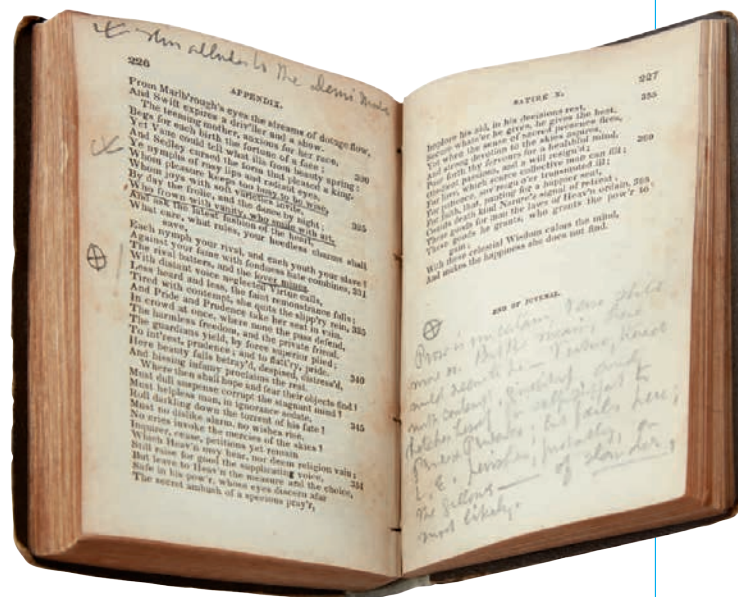 * Thus alludes to the Demi Monde
226
APPENDIX.
From Marlb'rough's eyes the streams of dotage flow,
And Swift expires a driv'ler and a show.
The teeming mother, anxious for her race,
Begs for each birth the fortune of a face;
Yet Vane could tell what ills from beauty spring;
And Sedley cursed the form that pleased a king.
Ye nymphs of rosy lips and radiant eyes,
Whom pleasure keeps too busy to be wise,
Whom joys with soft varieties invite,
By day the frolic, and the dance by night;
Who frown with vanity, who smile with art,
And ask the latest fashion of the heart,
What care, what rules, your heedless charms shall
save,
Each nymph your rival, and each youth your slave!
Against your fame with fondness hate combines, 331
The rival batters, and the lover mines.
With distant voice neglected Virtue calls,
Less heard and less, the faint remonstrance falls;
Tired with contempt, she quits the slipp'ry rein, 335
And Pride and Prudence take her seat in vain.
In crowd at once, where none the pass defend,
The harmless freedom, and the private friend.
The guardians yield, by force superior plied;
To int'rest, prudence; and to flatt'ry, pride. 340
Here beauty falls betray'd, despised, distress'd,
And hissing infamy proclaims the rest.
Where then shall hope and fear their objects find!
Must dull suspense corrupt the stagnant mind!
Must helpless man, in ignorance sedate, 345
Roll darkling down the torrent of his fate!
Must no dislike alarm, no wishes rise,
No cries invoke the mercies of the skies!
Inquirer, cease, petitions yet remain
Which Heav'n may hear, nor deem religion vain;
Still raise for good the supplicating voice, 351
But leave to Heav'n the measure and the choice,
Safe in his pow'r, whose eyes discern afar
The secret ambush of a specious pray'r,
SATIRE X.
227
Implore his aid, in his decisions rest, 355
Secure whate'er he gives, he gives the best.
Yet when the sense of sacred presence fires,
And strong devotion to the skies aspires,
Pour forth thy fervours for a healthful mind,
Obedient passions, and a will resign'd; 360
For love, which scarce collective man can fill;
For patience, sov'reign o'er transmuted ill;
For faith, that, panting for a happier seat,
Counts death kind Nature's signal of retreat:
These goods for man the laws of Heav'n ordain, 365
These goods he grants, who grants the pow'r to
gain;
With these celestial Wisdom calms the mind,
And makes the happiness she does not find.
END OF JUVENAL.
Prose is uncertain
mind seems to be — Virtue,
with contempt,
herself
Prudence; but fails here;
i.e. perishes, probably, on
the gallows — of slander,
most likely.